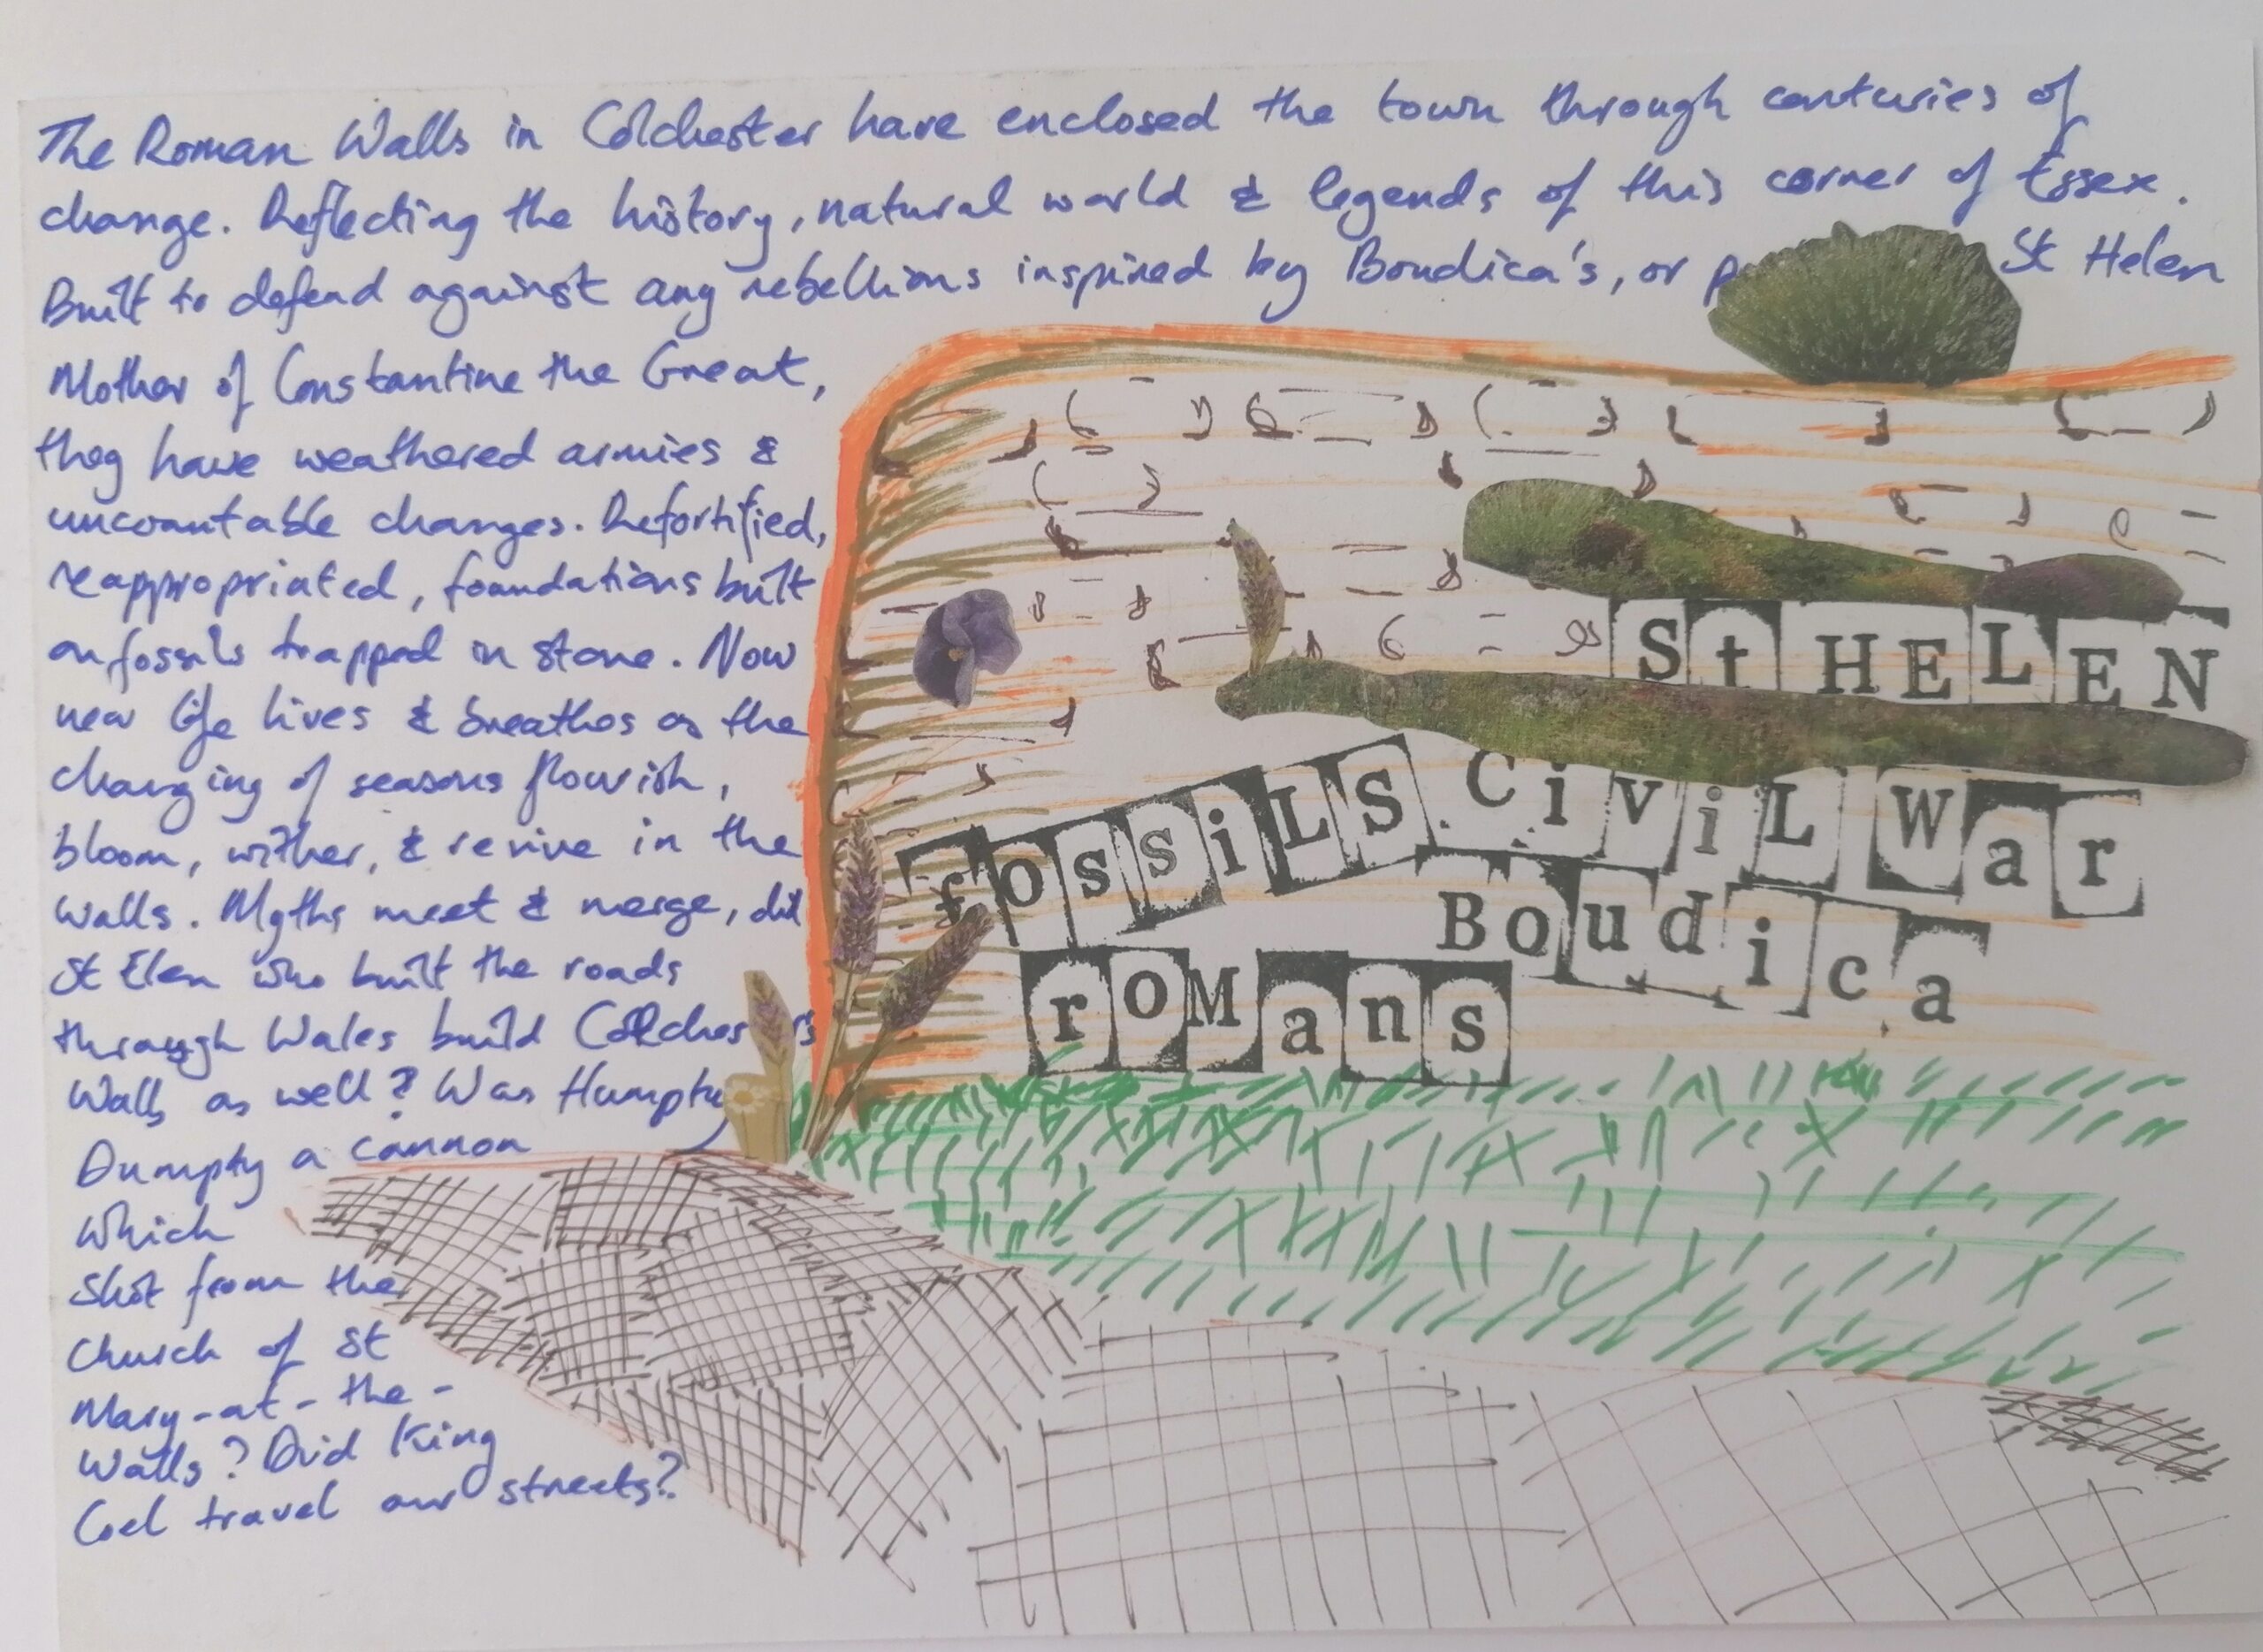 The Roman Walls in Colchester have enclosed the town through centuries of
change. Reflecting the history, natural world & legends of this corner of Essex.
Built to defend against any rebellions inspired by Boudica's, or St Helen
Mother of Constantine the Great,
they have weathered armies &
uncountable changes. Refortified,
reappropriated, foundations built
on fossils trapped in stone. Now
new life lives & breathes as the
changing of seasons flourish,
bloom, wither, & revive in the
walls. Myths meet & merge, did
St Elen who built the roads
through Wales build
Walls as well? Was Humpty
Dumpty a cannon
which
shot from the
Church of St
Mary-at-the-
Walls? Did King
Coel travel our streets?
St HELEN
fossiLS CiviL War
Boudica
roMans